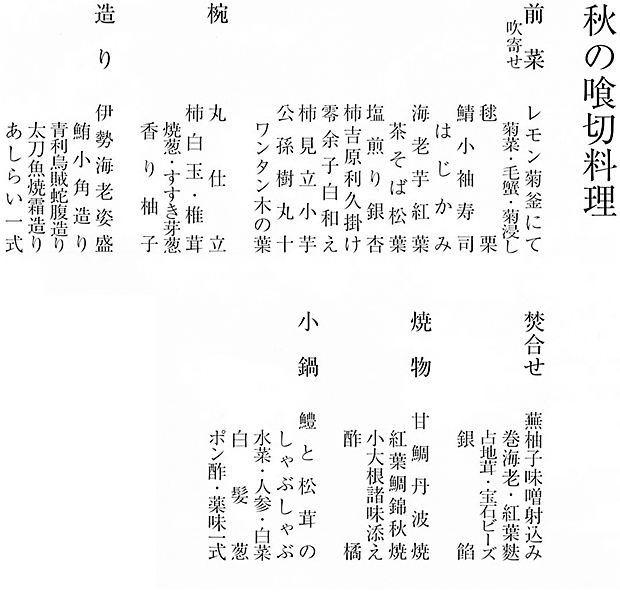 秋の喰切料理
前菜
吹寄せ
レモン菊釜にて
菊菜・毛蟹・菊浸し
毬栗
鯖小袖寿司
はじかみ
海老芋紅葉
茶そば松葉
塩煎り銀杏
柿吉原利久掛け
零余子白和え
柿見立小芋
公孫樹丸十
ワンタン木の葉
椀
丸仕立
柿白玉・椎茸
焼葱・すすき芽葱
香り柚子
造り
伊勢海老姿盛
鮪小角造り
青利烏賊蛇腹造り
太刀魚焼霜造り
あしらい一式
焚合せ
蕪柚子味噌射込み
巻海老・紅葉麩
占地茸・宝石ビーズ
銀餡
焼物
甘鯛丹波焼
紅葉鯛錦秋焼
小大根諸味添え
酢橘
小鍋
鱧と松茸の
しゃぶしゃぶ
水菜・人参・白菜
白髪葱
ポン酢・薬味一式